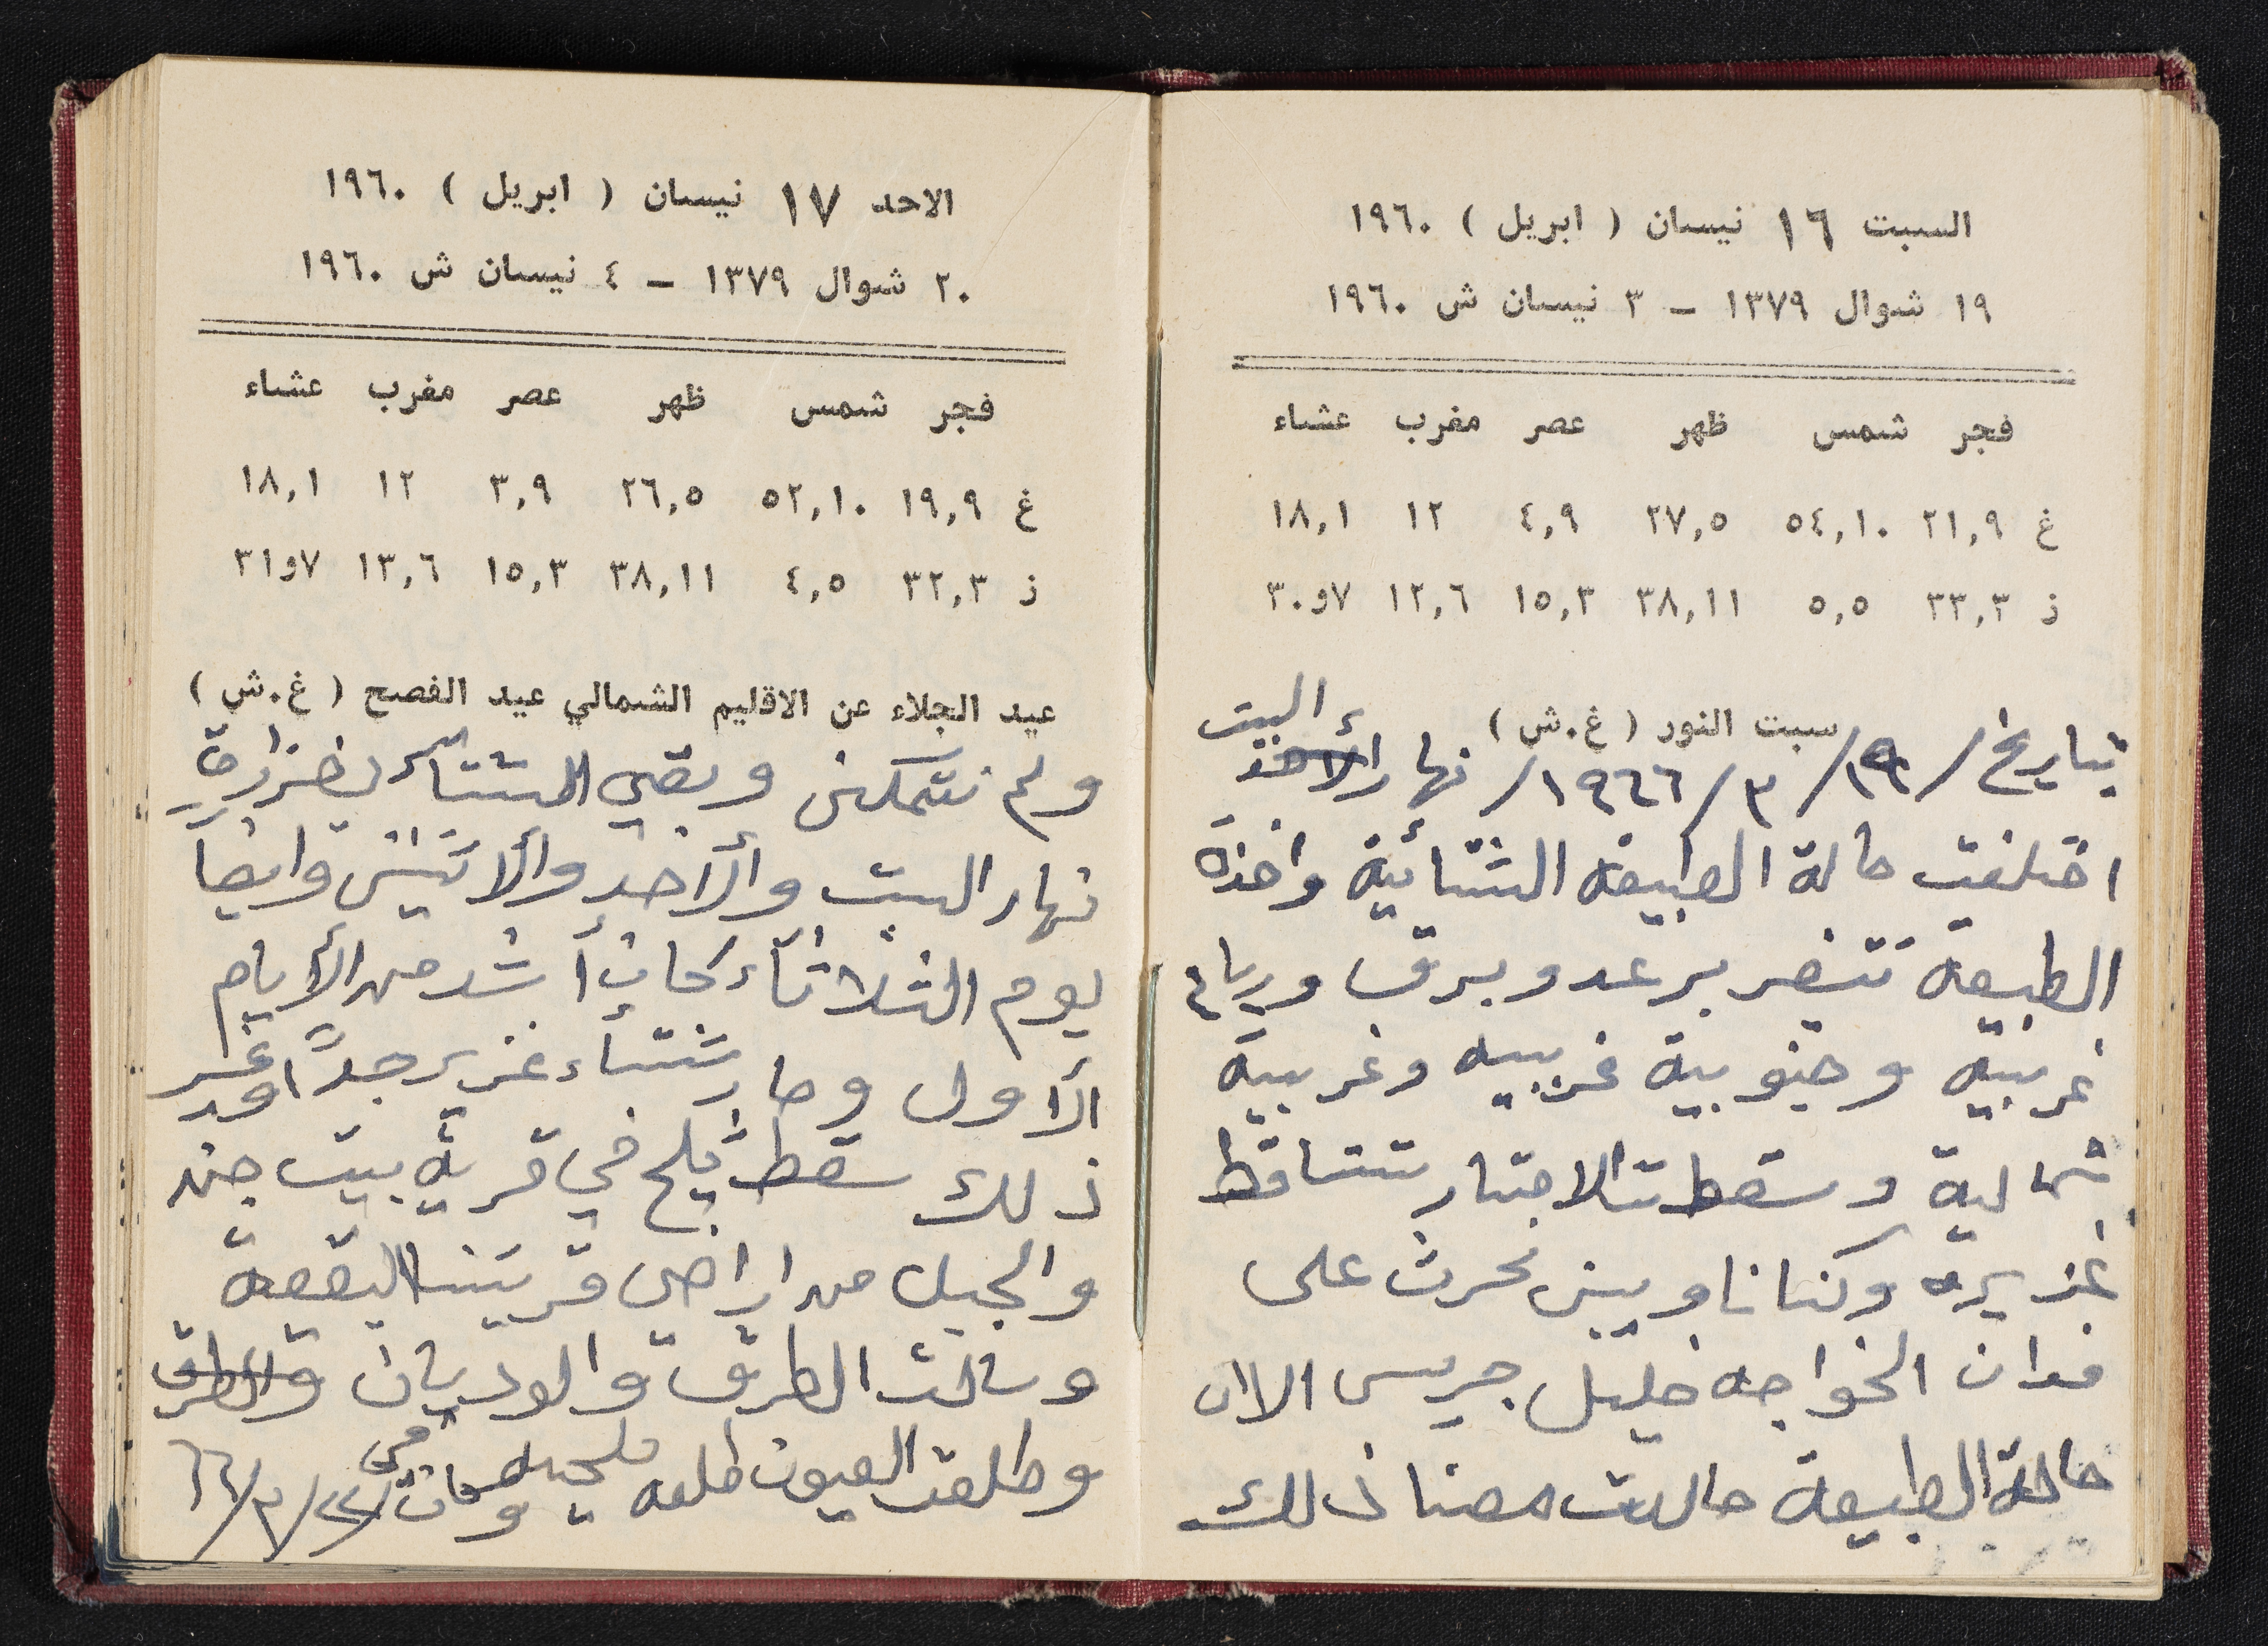 السبت ١٦ نيسان ( ابريل ) ١٩٦٠
١٩ شوال ١٣٧٩ – ٣ نيسان ش ١٩٦٠
فجر شمس ظهر عصر مغرب عشاء
غ ٢١,٩ ٥٤,١٠ ٢٧,٥ ٤,٩ ١٢ ١٨,١
ذ ٣٣,٣ ٥,٥ ٣٨,١١ ١٥,٣ ١٢,٦ ٧و٣٠
سبت النور ( غ.ش )
تباريخ/١٩/٣/١٩٦٦/نهار الأحد السبت
اختلفت حالة الطبيعه الشتائية واخذة
الطبيعه تتغير برعد وبرق ورياح
غربية وجنوبية غربيه وغربية
شمالية وسقطت الامتار تتساقط
غزيره وكنا نا وبيني نحرث على
فدان الخواجه خليل جريس الان
حالة الطبيعة حالت معنا ذلك
الاحد ١٧ نيسان ( ابريل ) ١٩٦٠
٢٠ شوال ١٣٧٩ – ٤ نيسان ش ١٩٦٠
فجر شمس ظهر عصر مغرب عشاء
غ ١٩,٩ ٥٢,١٠ ٢٦,٥ ٣,٩ ١٢ ١٨,١
ذ ٣٢,٣ ٤,٥ ٣٨,١١ ١٥,٣ ١٣,٦ ٧و٣١
عيد الجلاء عن الاقليم الشمالي عيد الفصح ( غ.ش )
ولم نتمكن وبقي الشتاء بغزارة
نهار السبت والأحد والاثنين وايضاً
يوم الثلاثاء كان أشد من الأيام
الأول وصار شتاء غزير جداً وغير
ذلك سقط ثلج في قرية بيت جن
والجبل من اراضي قريتنا البقيعة
وسالت الطرق والوديان والطرق
وطلعت العيون طلعه مليحه وكان في ٢٢/٣/٦٦